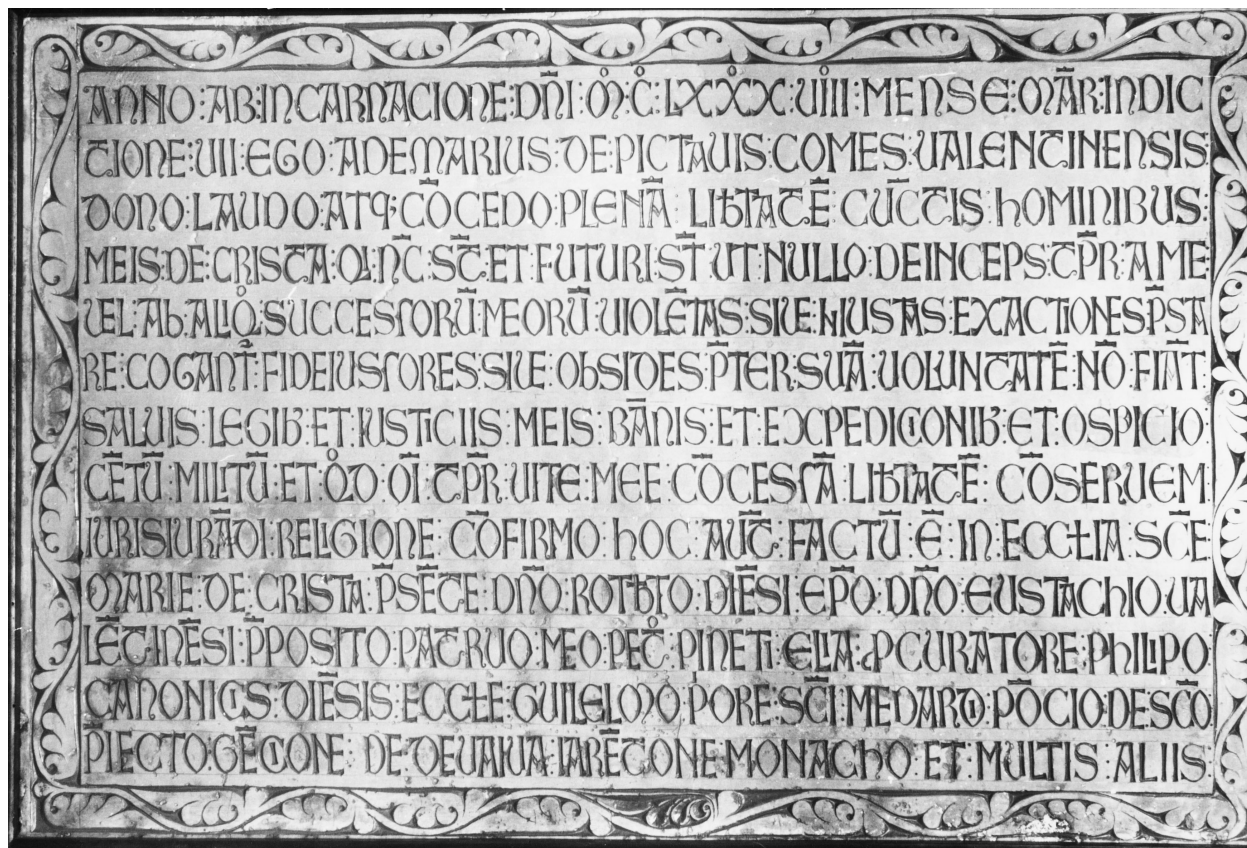 ANNO : AB : INCARNACIONE : DN̄I : M̊ : C̊ : LXXX̊ : VIIII̊ : MENSE : MĀR : INDIC
TIONE : VII : EGO : ADEMARIUS : DE : PICTAVIS : COMES : VALENTINENSIS :
DONO : LAUDO : ATQ; : CŌCEDO : PLENĀ LIƀTATĒ : CŪCTIS : hOMINIBUS :
MEIS : DE : CRISTA : QI : NC̄ : ST̄ : ET : FUTURI : ST̄ : UT : NULLO : DEINCEPS : TP̄R : A ME
VEL : Ab : ALIQ̊ : SUCCESSORŪ : MEORŪ : VIOLĒTAS : SIVE : INIUSTAS : EXACTIONES : P̄STA
RE : COGANT̄ : FIDEIUSSORES : SIVE : ObSIDES : P̄TER : SUĀ : VOLUNTATĒ : NŌ : FIĀT :
SALVIS : LEGIB : ET : IUSTICIIS : MEIS : BĀNIS : ET : EXPEDICIONIB : ET : OSPICIO :
CĒTŪ : MILITŪ : ET : Q̊D : OĪ : TP̄R : VITE : MEE : CŌCESSĀ : LIƀTATĒ : CŌSERVEM :
IURISIURĀDI : RELIGIONE : CŌFIRMO : hOC : AUT̄ : FACTŪ : Ē : IN : ECCŁIA : SC̄E
MARIE : DE : CRISTA : P̄SĒTE : DN̄O : ROTƀTO : DIĒSI : EP̄O : DN̄O : EUSTAChIO : VA
LĒTINĒSI : P̄POSITO : PATRUO : MEO : PET̊ : PINETI : ELIA : ꝓCURATORE : PhILIPO :
CANONICIS : DIĒSIS : ECCŁE : GUILELMO : PORE : SC̄I : MEDARDI : PŌCIO : DESCŌ
P̄IECTO : GĒCIONE : DE : DEVAIVA : IARĒTONE : MONAChO : ET : MULTIS : ALIIS :